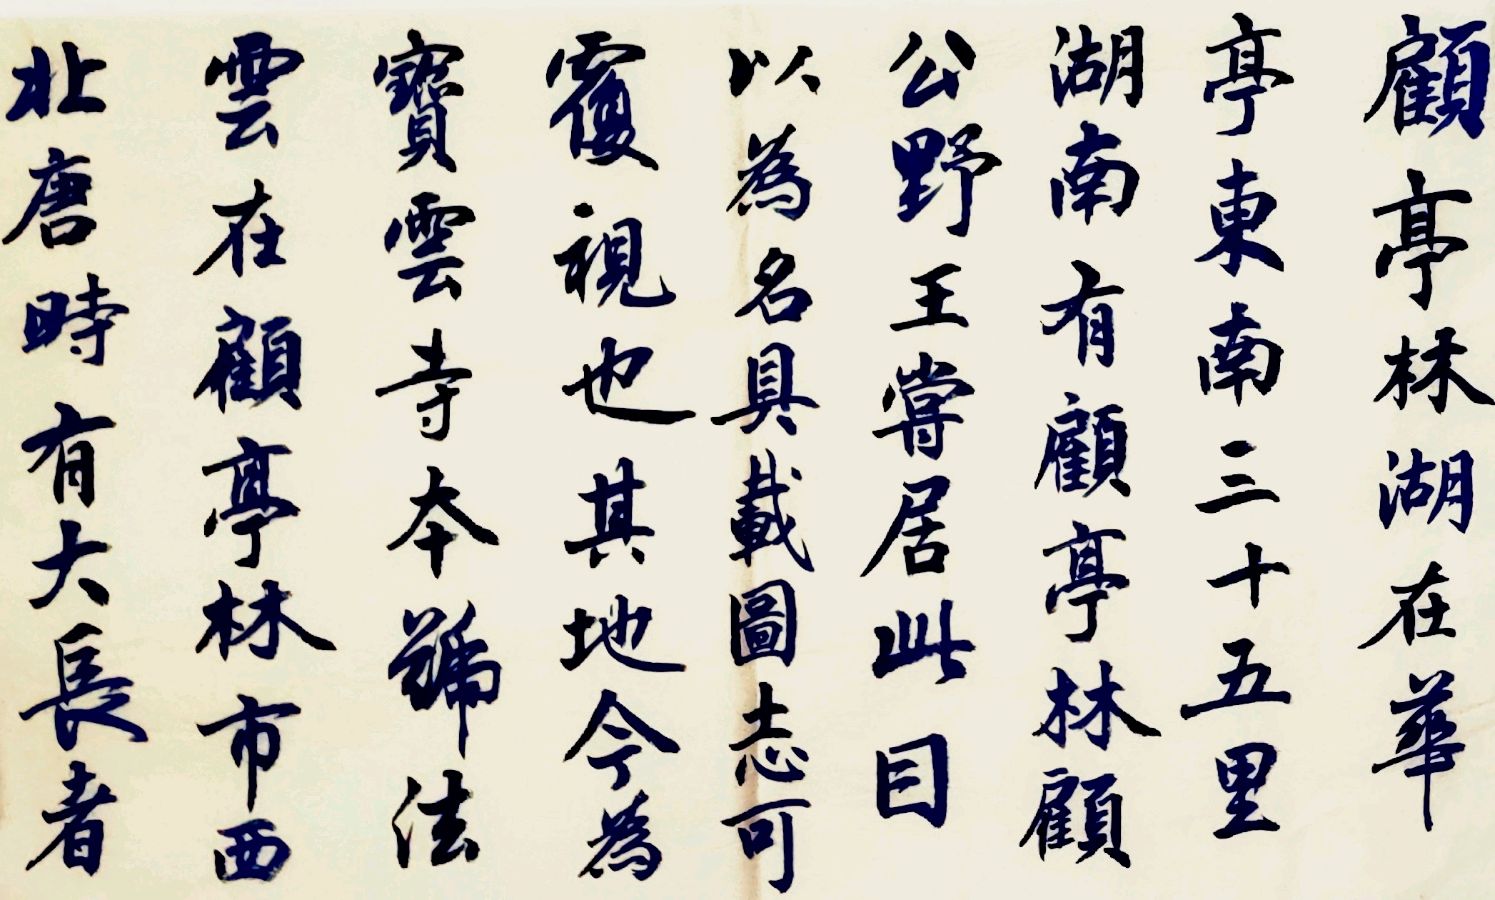 顧亭林湖在華
亭東南三十五里
湖南有顧亭林顧
公野王嘗居此因
以為名具載圖志可
覆視也其地今為
寶雲寺本號法
雲在顧亭林市西
北唐時有大長者